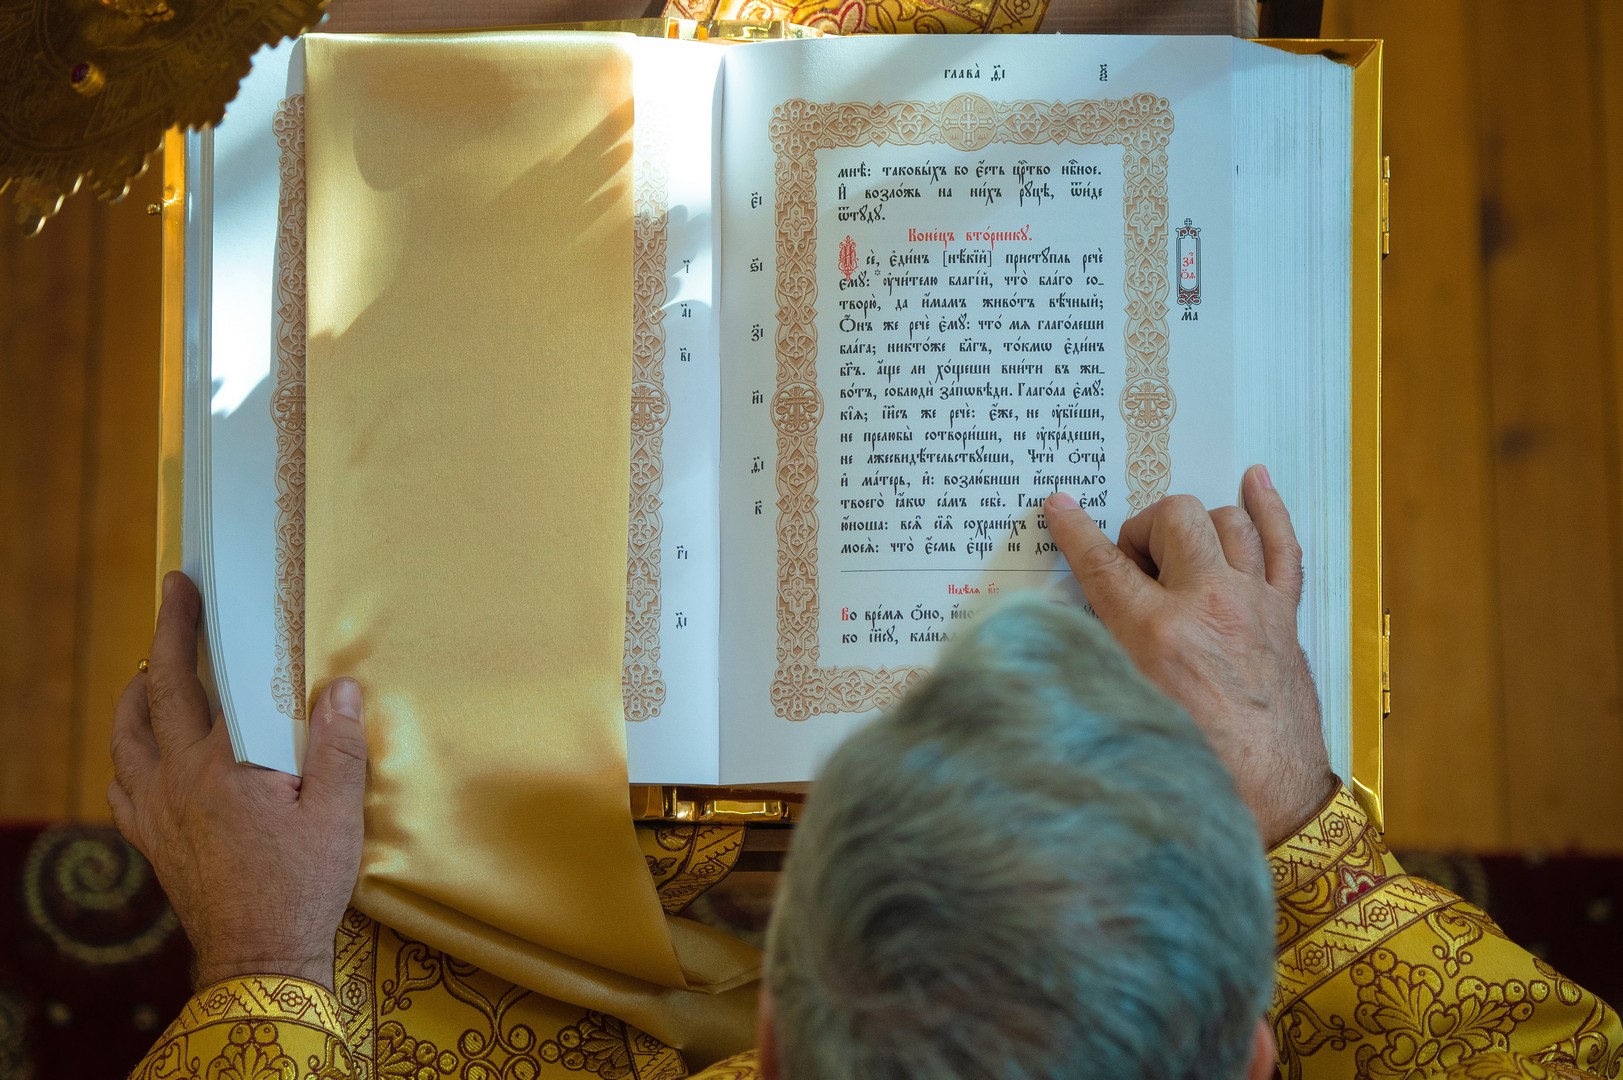 глава̀ д҃і
мнѣ̀: таковы́хъ бо є҆́сть црⷭ҇тво нбⷭ҇ное.
И҆ возло́жь на ни́хъ рꙋ́цѣ, ѿи́де
ѿтꙋ́дꙋ.
Коне́цъ вто́рникꙋ.
И҆ сѐ, є҆ди́нъ [нѣ́кїй] пристꙋ́пль речѐ
є҆мꙋ̀: ᲂу҆чи́телю бл҃гі́й, что̀ бла́го со-
творю̀, да и҆́мамъ живо́тъ вѣ́чный;
Ѻ҆́нъ же речѐ є҆мꙋ̀: что́ мѧ глаго́леши
бла́га; никто́же бл҃гъ, то́кмѡ є҆ди́нъ
бг҃ъ. а҆́ще ли хо́щеши вни́ти въ жи-
во́тъ, соблюдѝ за́пѡвѣди. Глаго́ла є҆мꙋ̀:
кі̑ѧ; і҆и҃съ же речѐ: є҆́же, не ᲂу҆бїе́ши,
не прелюбы̀ сотвори́ши, не ᲂу҆кра́деши,
не лжесвидѣ́тельствꙋеши, Чтѝ ѻ҆тца̀
и҆ ма́терь, и҆: возлю́биши и҆́скреннѧго
твоего̀ ꙗ҆́кѡ са́мъ себѐ. є҆мꙋ̀
ю҆́ноша: всѧ̑ сїѧ̑ сохрани́хъ
моеѧ̀: что̀ є҆́смь є҆щѐ не
Недѣ́лѧ
Во вре́мѧ ѻ҆́но,
ко і҆и҃сꙋ,
є҃і
ѕ҃і
з҃і
и҃і
ѳ҃і
к҃
і҃
а҃і
в҃і
г҃і
д҃і
за҄
ѻ҃ѳ
м҃а